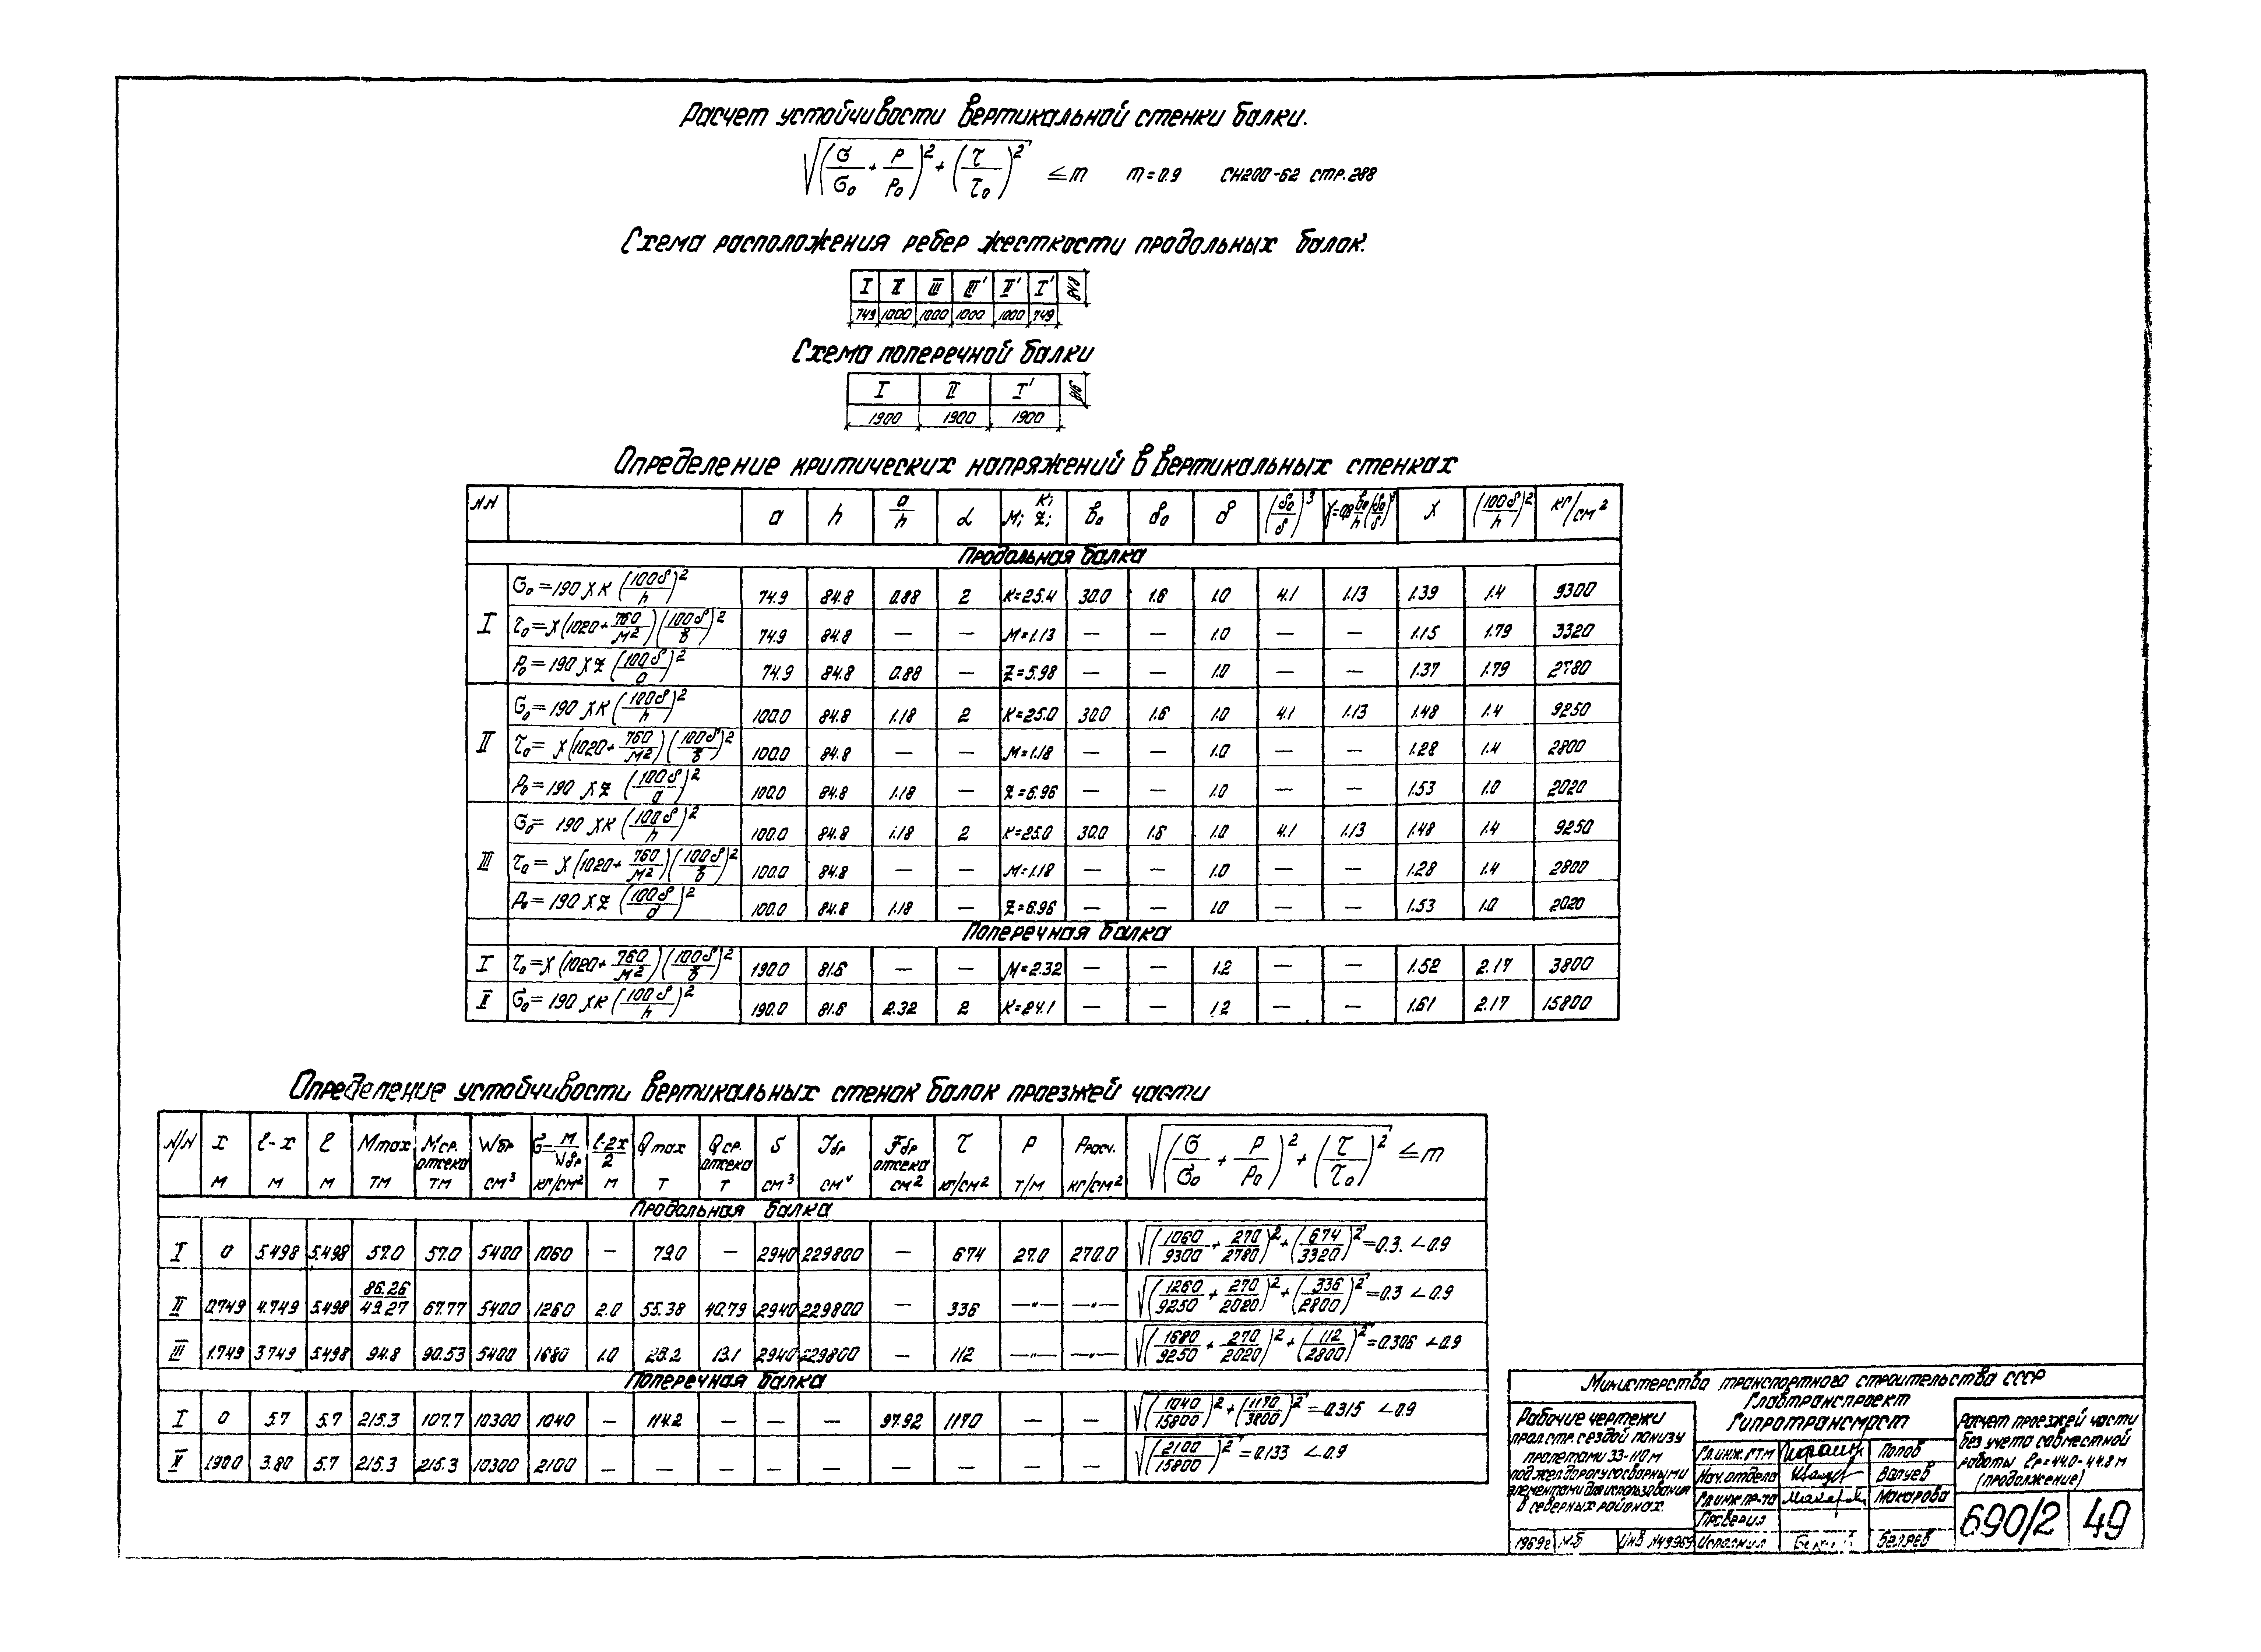 Расчет устойчивости вертикальной стенки балки.
√((σ/σ₀ + P/P₀)² + (τ/τ₀)²) ≤ m m = 0.9 СН200-62 стр. 288
Схема расположения ребер жесткости продольных балок.
I II III III' II' I' 848
749 1000 1000 1000 1000 749
Схема поперечной балки
I II I' 816
1900 1900 1900
Определение критических напряжений в вертикальных стенках
NN a h a/h α К; М; Z; b₀ δ₀ δ (δ₀/δ)³ γ=0,8 b₀/h (δ₀/δ)³ χ (100δ/h)² кг/см²
Продольная балка
I σ₀ = 190 χ К (100δ/h)² 74.9 84.8 0.88 2 К=25.4 30.0 1.6 1.0 4.1 1.13 1.39 1.4 9300
τ₀ = χ (1020 + 760/М²) (100δ/b)² 74.9 84.8 — — М=1.13 — — 1.0 — — 1.15 1.79 3320
P₀ = 190 χ Z (100δ/a)² 74.9 84.8 0.88 — Z=5.98 — — 1.0 — — 1.37 1.79 2780
II σ₀ = 190 χ К (100δ/h)² 100.0 84.8 1.18 2 К=25.0 30.0 1.6 1.0 4.1 1.13 1.48 1.4 9250
τ₀ = χ (1020 + 760/М²) (100δ/b)² 100.0 84.8 — — М=1.18 — — 1.0 — — 1.28 1.4 2800
P₀ = 190 χ Z (100δ/a)² 100.0 84.8 1.18 — Z=6.96 — — 1.0 — — 1.53 1.0 2020
III σ₀ = 190 χ К (100δ/h)² 100.0 84.8 1.18 2 К=25.0 30.0 1.6 1.0 4.1 1.13 1.48 1.4 9250
τ₀ = χ (1020 + 760/М²) (100δ/b)² 100.0 84.8 — — М=1.18 — — 1.0 — — 1.28 1.4 2800
P₀ = 190 χ Z (100δ/a)² 100.0 84.8 1.18 — Z=6.96 — — 1.0 — — 1.53 1.0 2020
Поперечная балка
I τ₀ = χ (1020 + 760/М²) (100δ/b)² 190.0 81.6 — — М=2.32 — — 1.2 — — 1.52 2.17 3800
II σ₀ = 190 χ К (100δ/h)² 190.0 81.6 2.32 2 К=24.1 — — 1.2 — — 1.61 2.17 15800
Определение устойчивости вертикальных стенок балок проезжей части
N/N x м ℓ-x м ℓ м Mmax тм Mср. отсека тм Wбр см³ σ=M/Wбр кг/см² ℓ-2x/2 м Qmax т Qср. отсека т S см³ Jбр см⁴ Fбр отсека см² τ кг/см² P т/м Pрасч. кг/см² √((σ/σ₀ + P/P₀)² + (τ/τ₀)²) ≤ m
Продольная балка
I 0 5.498 5.498 57.0 57.0 5400 1060 — 79.0 — 2940 229800 — 674 27.0 270.0 √((1060/9300 + 270/2780)² + (674/3320)²) = 0.3. < 0.9
II 0.749 4.749 5.498 86.26/49.27 67.77 5400 1260 2.0 55.38 40.79 2940 229800 — 336 —"— —"— √((1260/9250 + 270/2020)² + (336/2800)²) = 0.3 < 0.9
III 1.749 3.749 5.498 94.8 90.53 5400 1680 1.0 28.2 13.1 2940 229800 — 112 —"— —"— √((1680/9250 + 270/2020)² + (112/2800)²) = 0.306 < 0.9
Поперечная балка
I 0 5.7 5.7 215.3 107.7 10300 1040 — 114.2 — — — 97.92 1170 — — √((1040/15800)² + (1170/3800)²) = 0.315 < 0.9
II 1.900 3.80 5.7 215.3 215.3 10300 2100 — — — — — — — — — √(2100/15800)² = 0.133 < 0.9
Министерство транспортного строительства СССР
Главтранспроект
Гипротрансмост
Рабочие чертежи
прол.стр. с ездой понизу
пролетами 33-110 м
под жел.дорогу со сборными
элементами для использования
в северных районах.
1969г М-Б Инв N49969
Гл.инж.ГТМ Попов
Нач.отдела Валуев
Гл.инж.пр-та Макарова
Проверил
Исполнил Беляев
Расчет проезжей части
без учета совместной
работы ℓр = 44.0 - 44.8 м
(продолжение)
690/2 49